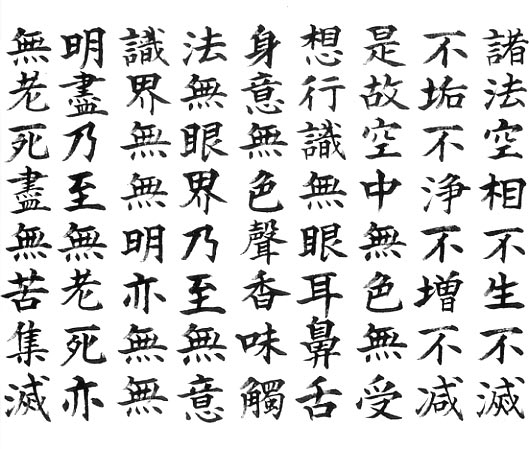 諸法空相不生不滅
不垢不浄不増不減
是故空中無色無受
想行識無眼耳鼻舌
身意無色聲香味觸
法無眼界乃至無意
識界無無明亦無無
明盡乃至無老死亦
無老死盡無苦集滅